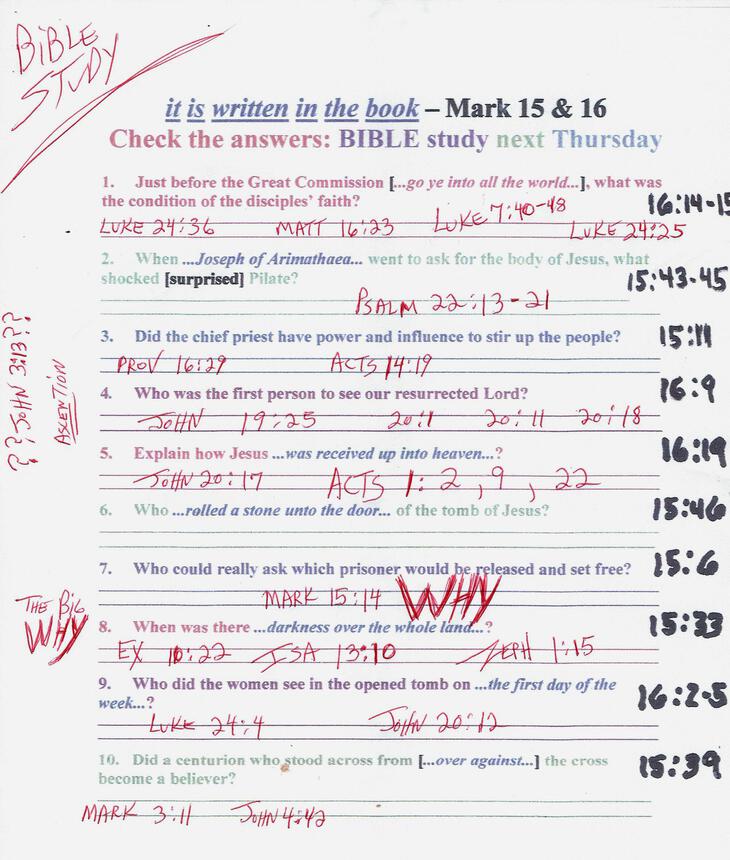 BIBLE
STUDY
it is written in the book – Mark 15 & 16
Check the answers: BIBLE study next Thursday
1. Just before the Great Commission [...go ye into all the world...], what was
the condition of the disciples' faith?
16:14-15
LUKE 24:36 MATT 16:23 LUKE 7:40-48 LUKE 24:25
2. When ...Joseph of Arimathaea... went to ask for the body of Jesus, what
shocked [surprised] Pilate?
15:43-45
PSALM 22:13-21
3. Did the chief priest have power and influence to stir up the people?
15:11
PROV 16:29 ACTS 14:19
??JOHN 3:13??
ASCENTION
4. Who was the first person to see our resurrected Lord?
16:9
JOHN 19:25 20:1 20:11 20:18
5. Explain how Jesus ...was received up into heaven...?
16:19
JOHN 20:17 ACTS 1:2, 9, 22
6. Who ...rolled a stone unto the door... of the tomb of Jesus?
15:46
7. Who could really ask which prisoner would be released and set free?
15:6
MARK 15:14 WHY
THE BIG
WHY
8. When was there ...darkness over the whole land...?
15:33
EX 10:22 ISA 13:10 ZEPH 1:15
9. Who did the women see in the opened tomb on ...the first day of the
week...?
16:2-5
LUKE 24:4 JOHN 20:12
10. Did a centurion who stood across from [...over against...] the cross
become a believer?
15:39
MARK 3:11 JOHN 4:42